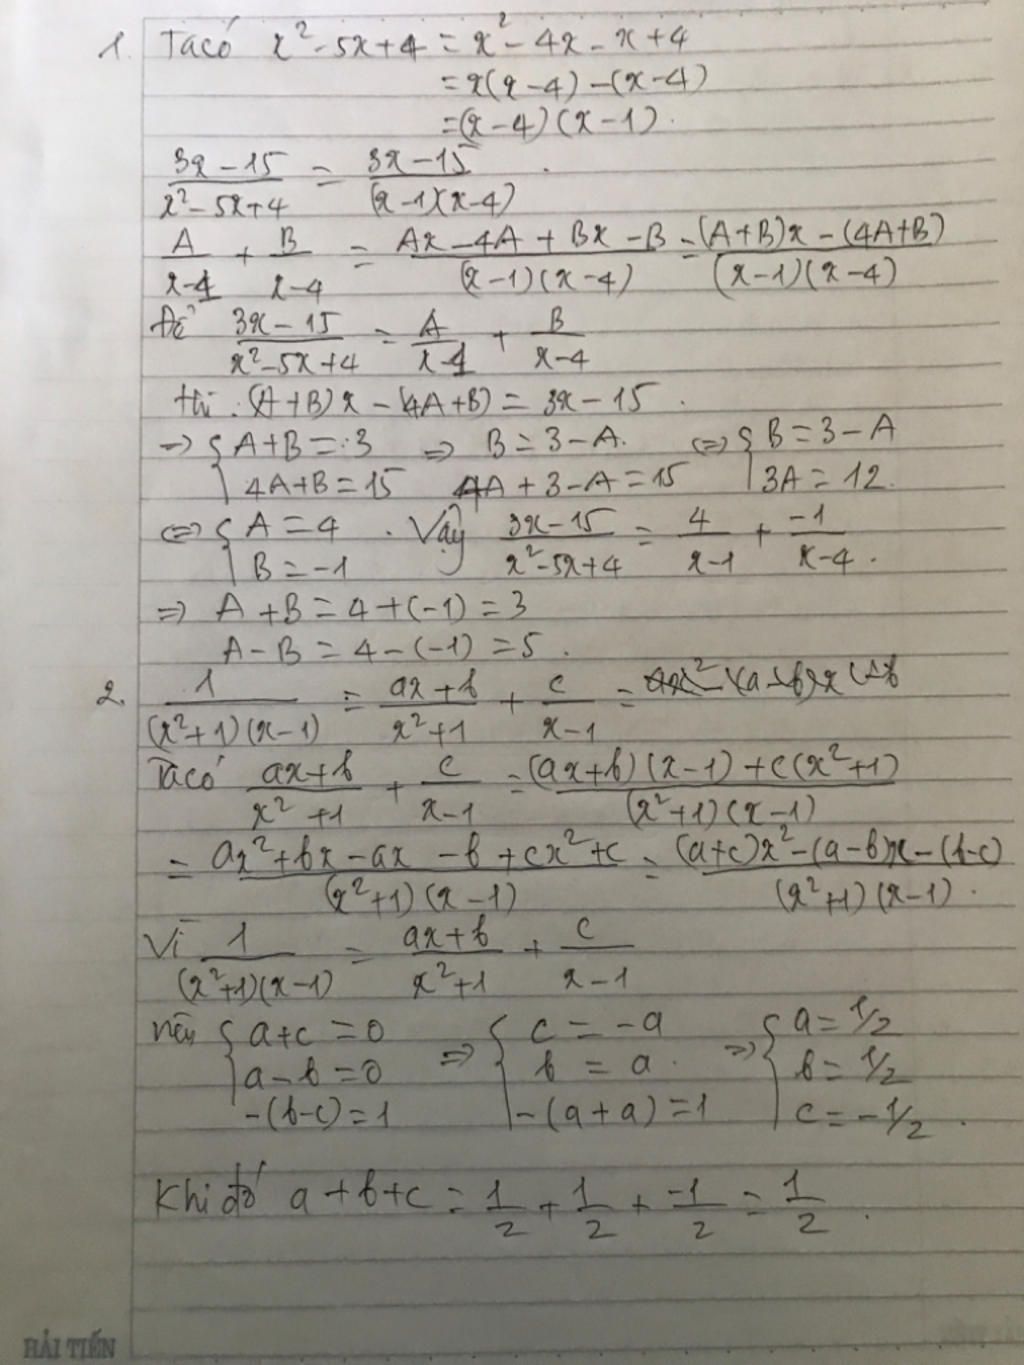 1. Ta có x² - 5x + 4 = x² - 4x - x + 4
= x(x-4) - (x-4)
= (x-4)(x-1).
(3x-15)/(x²-5x+4) = (3x-15)/((x-1)(x-4)).
A/(x-1) + B/(x-4) = (Ax-4A+Bx-B)/((x-1)(x-4)) = ((A+B)x-(4A+B))/((x-1)(x-4))
Để (3x-15)/(x²-5x+4) = A/(x-1) + B/(x-4)
thì. (A+B)x - (4A+B) = 3x-15.
=> { A+B = 3 => B = 3-A. <=> { B = 3-A
4A+B = 15 4A+3-A = 15 3A = 12.
<=> { A = 4 . Vậy (3x-15)/(x²-5x+4) = 4/(x-1) + -1/(x-4).
B = -1
=> A+B = 4+(-1) = 3
A-B = 4-(-1) = 5.
2. 1/((x²+1)(x-1)) = (ax+b)/(x²+1) + c/(x-1) =
Ta có (ax+b)/(x²+1) + c/(x-1) = ((ax+b)(x-1)+c(x²+1))/((x²+1)(x-1))
= (ax²+bx-ax-b+cx²+c)/((x²+1)(x-1)) = ((a+c)x²-(a-b)x-(b-c))/((x²+1)(x-1)).
Vì 1/((x²+1)(x-1)) = (ax+b)/(x²+1) + c/(x-1)
nên { a+c = 0 => { c = -a => { a = 1/2
a-b = 0 b = a. b = 1/2
-(b-c) = 1 -(a+a) = 1 c = -1/2.
Khi đó a+b+c = 1/2 + 1/2 + -1/2 = 1/2.
HẢI TIẾN